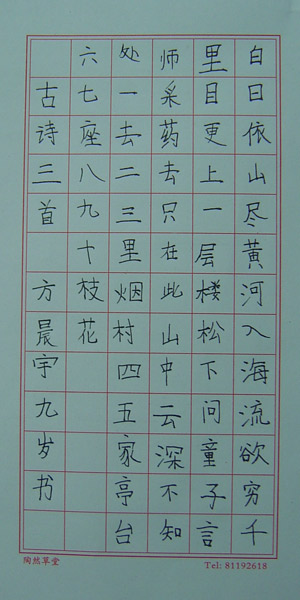 白日依山尽黄河入海流欲穷千
里目更上一层楼松下问童子言
师采药去只在此山中云深不知
处一去二三里烟村四五家亭台
六七座八九十枝花
古诗三首 方晨宇九岁书
陶然草堂 Tel: 81192618